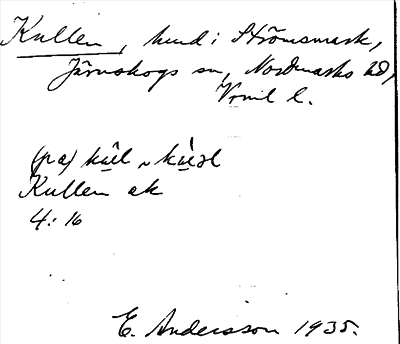 Kullen, hmd i Strömsmark,
Järnskogs sn, Nordmarks hd,
Vrml l.
(på)
Kullen ak
4:16
E. Andersson 1935.